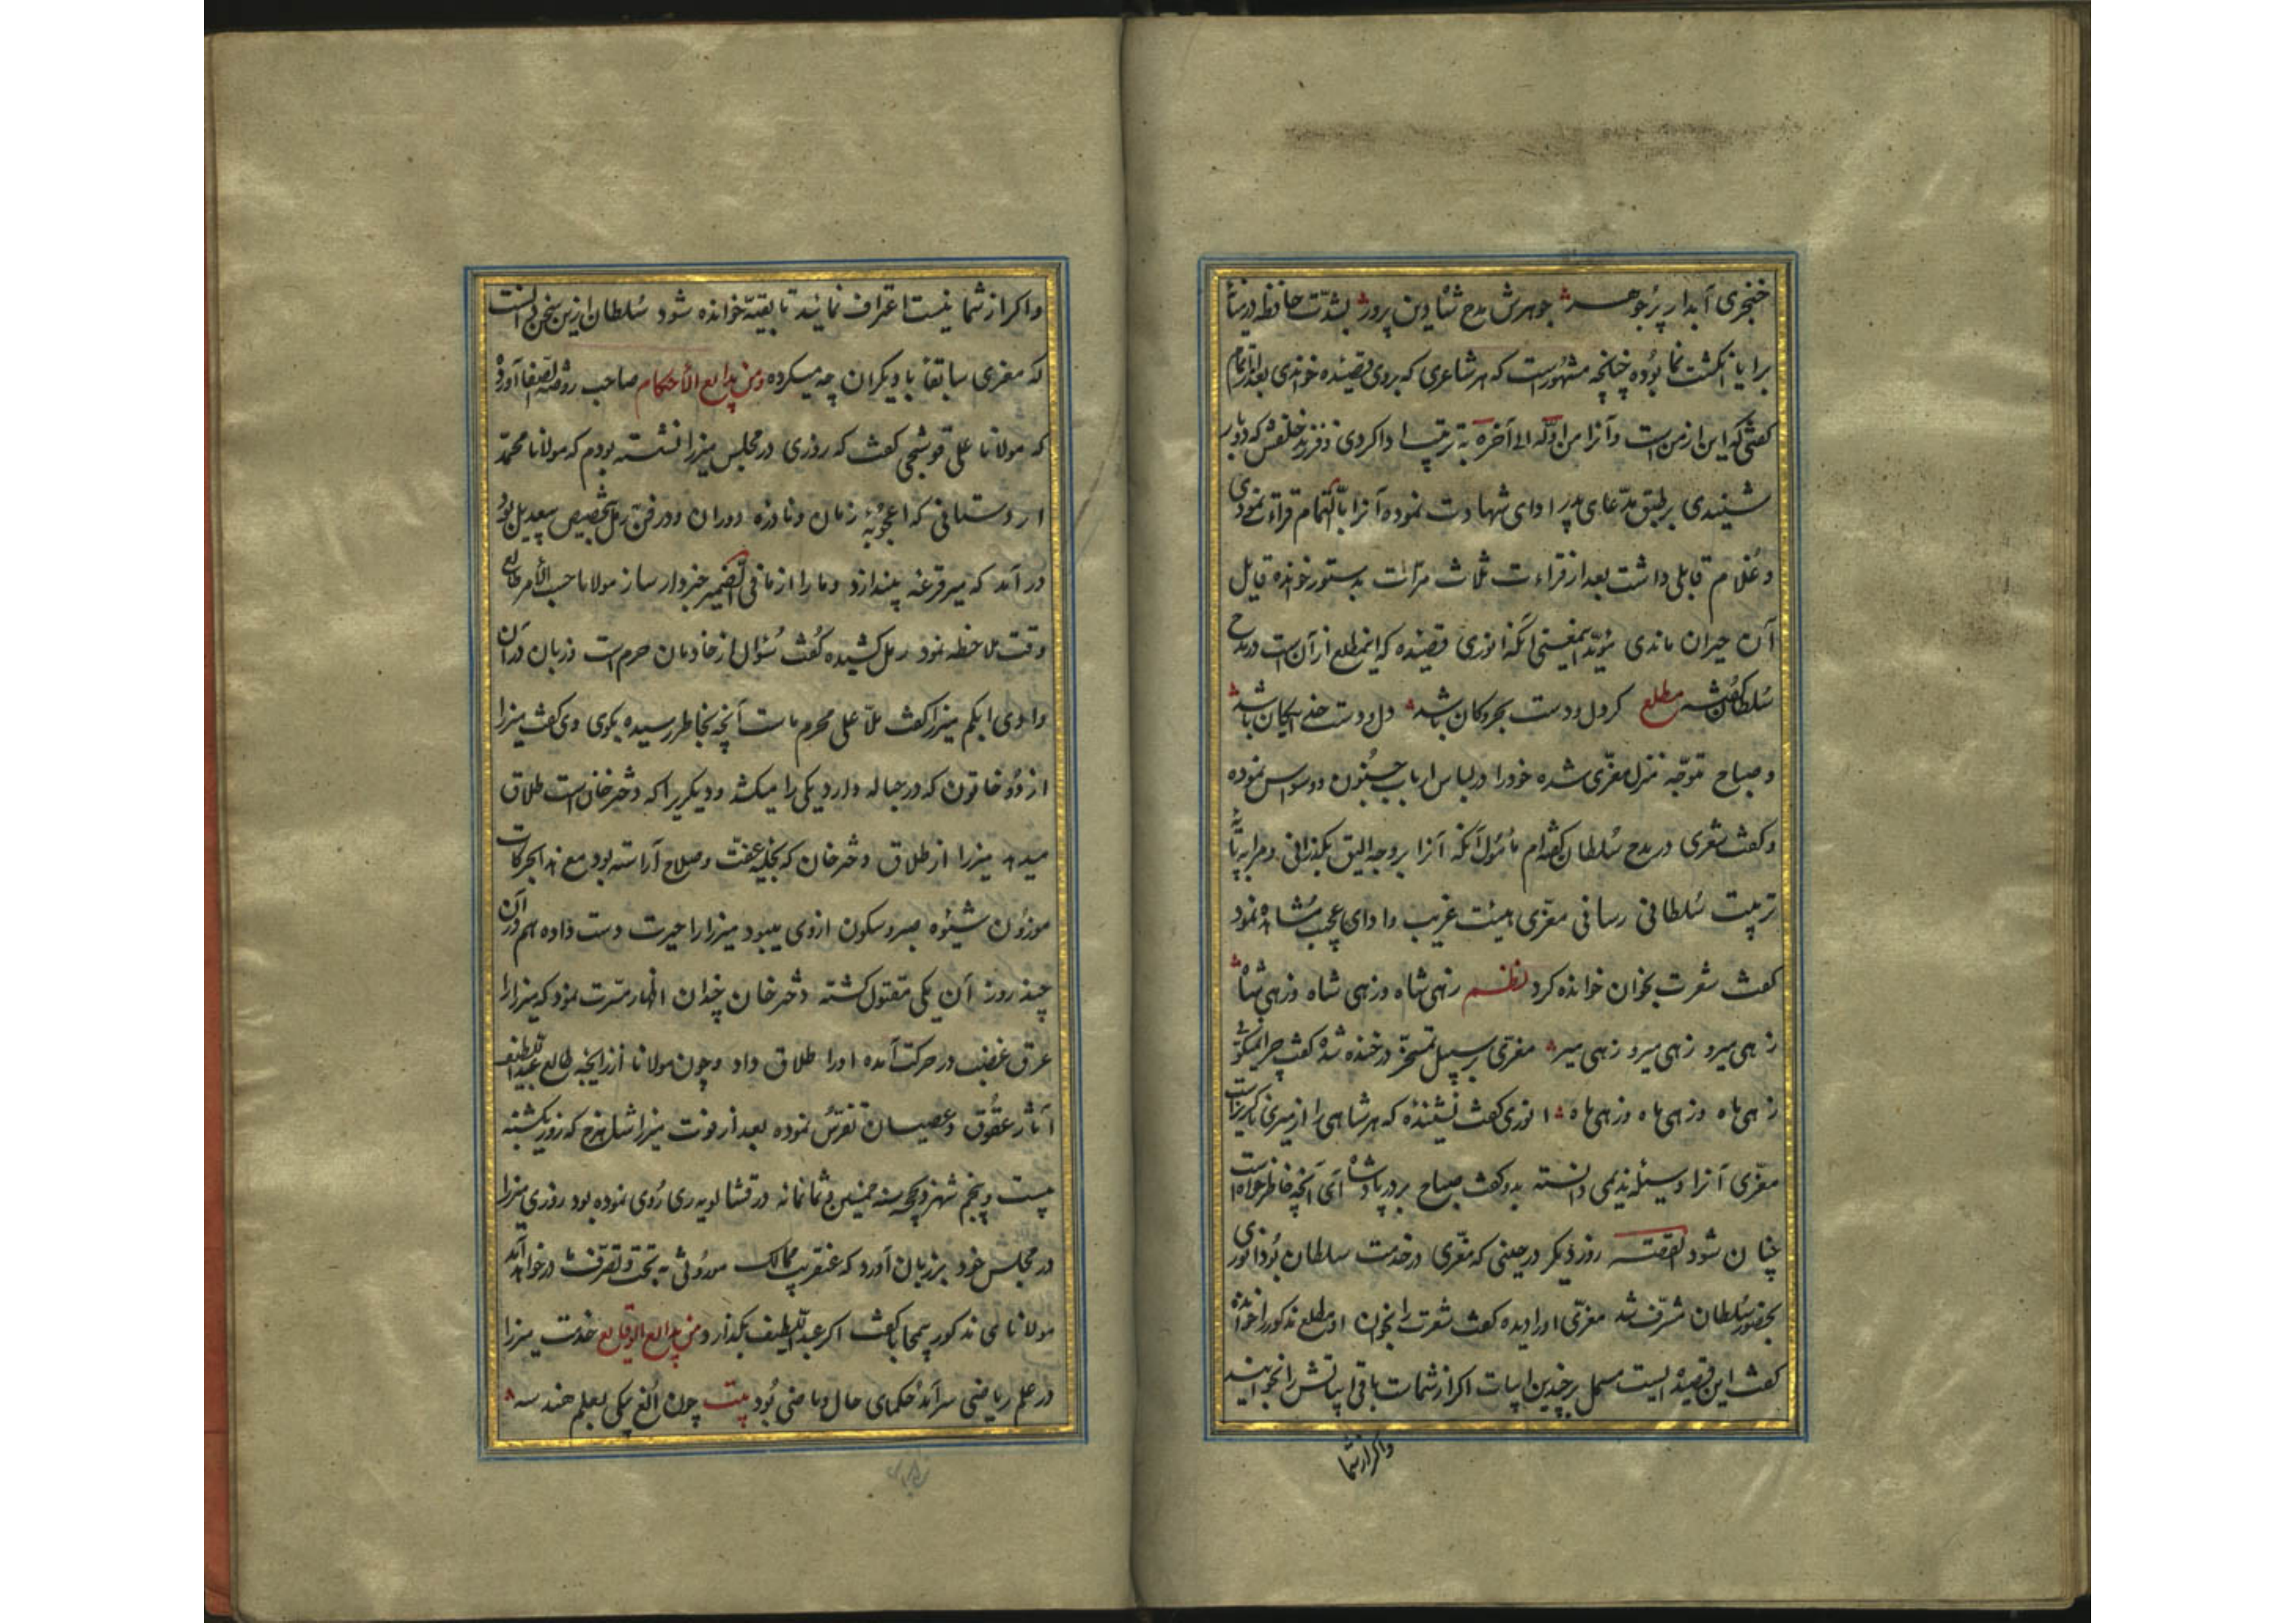 خنجری آبدار پر جوهر جوهرش مدح شاه دین پرور بشدّت حافظه درمیانه
برایا انگشت نما بوده چنانچه مشهورست که هر شاعری که بروی قصیده خواندی بعد از اتمام
گفتی که این از من است وآنرا من اوّله الی آخره به ترتیب ادا کردی و فرزند خلفش که دو بار
شنیدی بر طبق مدّعای پدر ادای شهادت نموده آنرا بالتمام قراءت نمودی
وغلام قابلی داشت بعد از قراءت ثلاث مرّات بدستور خوانده قایل
آن حیران ماندی مؤید اینمعنی آنکه انوری قصیده که این مطلع از آن است در مدح
سلطان گفته مطلع کر دل ودست بحر وکان باشد دل ودست خدایکان باشد
وصباح متوجّه منزل معزّی شده خود را در لباس ارباب جنون ووسواس نموده
وکفت شعری در مدح سلطان گفته ام مأمول آنکه آنرا بر وجه الیق بگذرانی ومرا به پایهٔ
تربیت سلطانی رسانی معزّی هیئت غریب وادای عجیب مشاهده نمود
کفت شعرت بخوان خوانده کرد نظم زهی شاه وزهی شاه وزهی شاه
زهی میر و زهی میر و زهی میر معزّی بر سبیل تمسخر در خنده شده کفت چرا نمیکوئی
زهی ماه وزهی ماه وزهی ماه انوری کفت نشنیده که هر شاهی را از میری ناگزیرست
معزّی آنرا وسیلهٔ ندیمی دانسته بدو کفت صباح بر در پادشاه آی آنچه خاطرخواه است
چنان شود القصّه روز دیکر در حینی که معزّی در خدمت سلطان بود انوری
بحضور سلطان مشرّف شد معزّی او را دیده کفت شعرت را بخوان او مطلع مذکور را خوانده
کفت این قصیده ایست مشتمل بر چندین ابیات اکر از شماست باقی ابیاتش را بخوانید
واکر از شما
واکر از شما نیست اعتراف نمایند تا بقیّه خوانده شود سلطان ازین سخن دانست
که معزی سابقاً با دیکران چه میکرده ومن بدایع الأحکام صاحب روضة الصفا آورده
که مولانا علی قوشجی کفت که روزی در مجلس میرزا نشسته بودم که مولانا محمّد
اردستانی که اعجوبهٔ زمان ونادره دوران ودر فن رمل بتخصیص بیعدیل بود
در آمد که میر قرعه بیندازد وما را از ما فی الضمیر خبردار ساز مولانا حسب الأمر طالع
وقت ملاحظه نمود رمل کشیده کفت سؤال از خادمان حرم است وزبان در آن
وادی ابکم میرزا کفت ملّا علی محرم ماست آنچه بخاطر رسیده بکوی وی کفت میرزا
از دو خاتون که در حباله دارد یکی را میکشد ودیکریرا که دختر خان است طلاق
میدهد میرزا از طلاق دختر خان که بحلیه عفّت وصلاح آراسته بود مع هذا بحرکات
موزون شیوه صبر وسکون ازوی میبود میرزا را حیرت دست داده هم در آن
چند روز آن یکی مقتول کشته دختر خان چندان اظهار مسرّت نمود که میرزا را
عرق غضب در حرکت آمده او را طلاق داد وچون مولانا از زایجهٔ طالع عبد اللطیف
آثار عقوق وعصیان تفرّس نموده بعد از فوت میرزا شاهرخ که روز یکشنبه
بیست وپنجم شهر ذیحجه سنه خمسین وثمانمائه در قشاویه ری روی نموده بود روزی میرزا
در مجلس خود بر زبان آورد که عنقریب ممالک موروثی به تحت وتصرّف ما در خواهد آمد
مولانای مذکور بیمحابا کفت اکر عبد اللطیف بگذارد ومن بدایع الوقایع خدمت میرزا
در علم ریاضی سرآمد حکمای حال وماضی بود بیت چون الغ بیکی بعلم هندسه